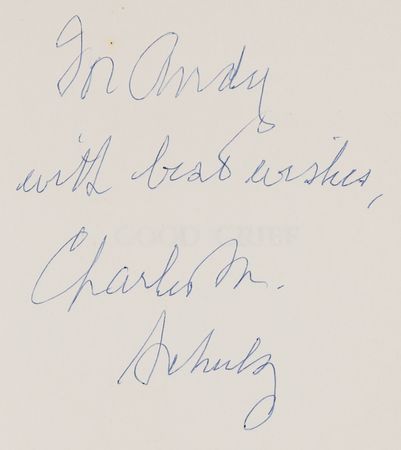 For Andy
with best wishes,
GOOD GRIEF
Charles M.
Schulz